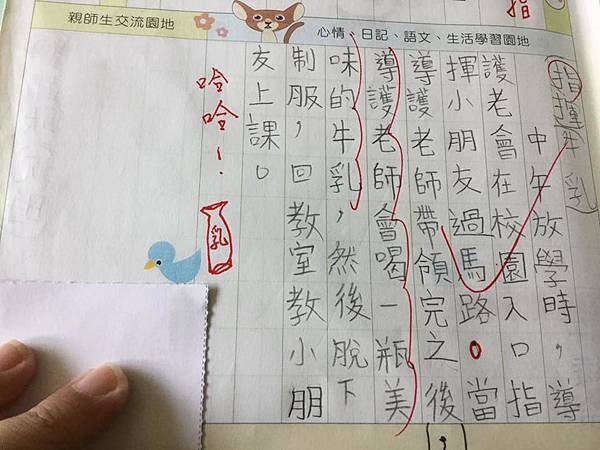 親師生交流園地
心情、日記、語文、生活學習園地
指
指揮牛乳
中午放學時，導
護老會在校園入口指
揮小朋友過馬路。當
導護老師帶領完之後，
導護老師會喝一瓶美
味的牛乳，然後脫下
制服，回教室教小朋
友上課。
哈哈！
乳